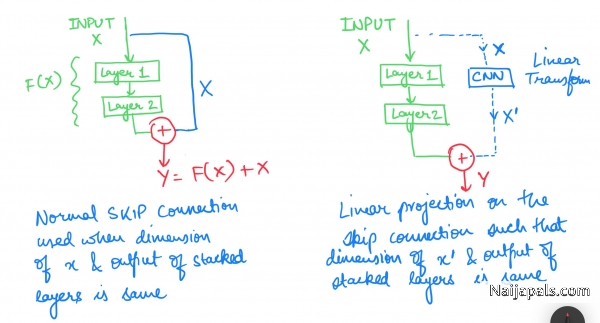 INPUT
X
F(X)
Layer 1
Layer 2
X
+
Y = F(X) + X
Normal SKIP connection
used when dimension
of x & output of stacked
layers is same
INPUT
X
Layer 1
Layer 2
X
CNN
Linear
Transform
X'
+
Y
Linear projection on the
skip connection such that
dimension of x' & output of
stacked layers is same
Naijapals.com